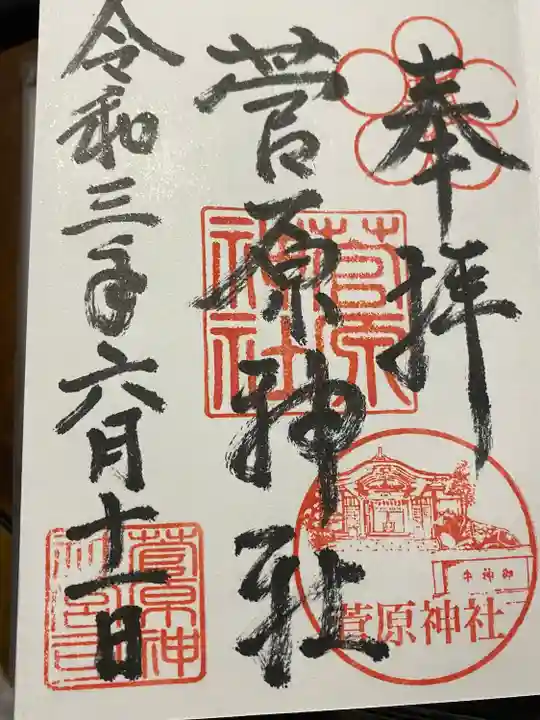 奉拝
菅原神社
令和三年六月十一日
菅原神社
御神牛
菅原神社